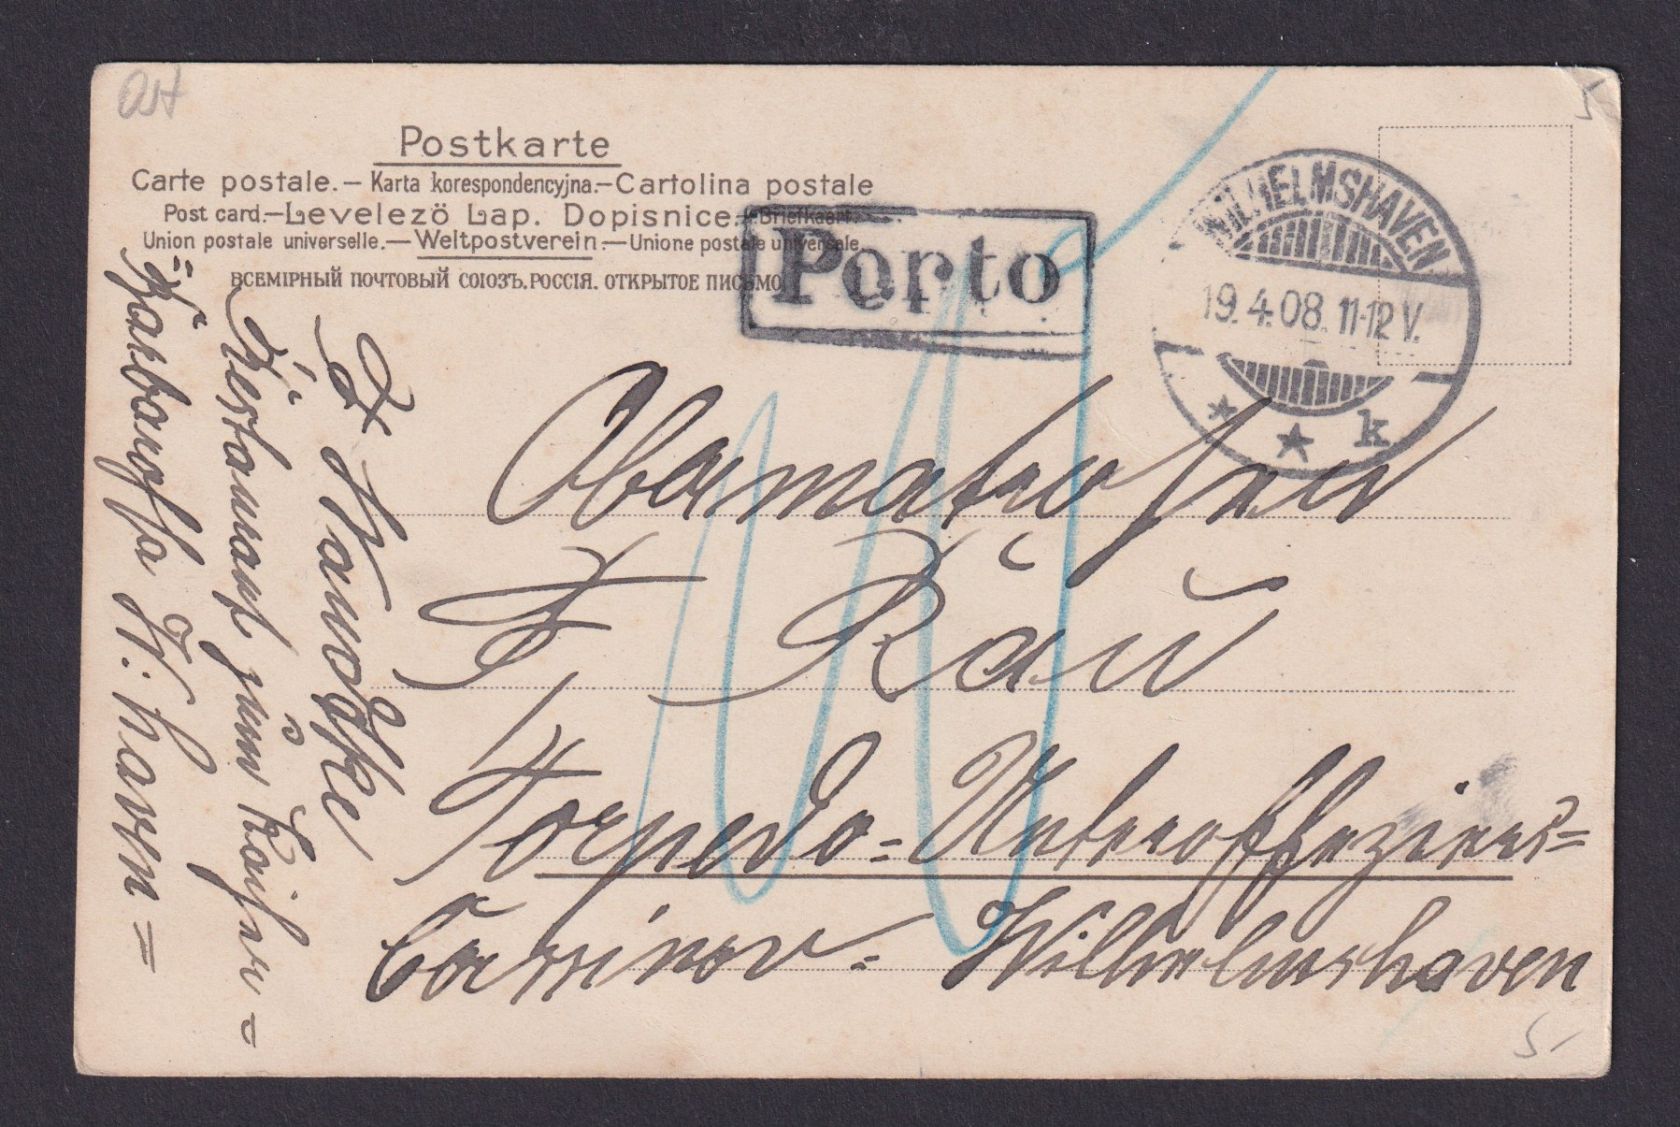 Postkarte
Carte postale.— Karta korespondencyjna.—Cartolina postale
Post card.—Levelezö Lap. Dopisnice.—Briefkaart.
Union postale universelle.—Weltpostverein.—Unione postale universale.
ВСЕМІРНЫЙ ПОЧТОВЫЙ СОЮЗЪ. РОССІЯ. ОТКРЫТОЕ ПИСЬМО
Porto
WILHELMSHAVEN
19.4.08. 11-12 V.
* * k
10
Obermatrosen
F. Raŭ
Torpedo=Unteroffiziers=
Cassino = Wilhelmshaven
Restaurant zum Kaiser=
W. haven =